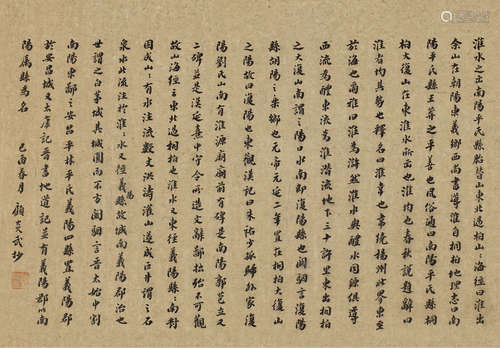 淮水之出南陽平氏縣胎簪山東北過桐山海經曰淮出
余山在朝陽東義鄉西尚書導淮自桐柏地理志曰南
陽平氏縣王莽之平善也風俗通曰南陽平氏縣桐
柏大復山在東南淮水所出也淮均也春秋說題辭曰
淮者均其勢也釋名曰淮韋也韋繞揚州北界東至
於海也爾雅曰淮為滸然淮水與醴水同源俱導
西流為醴東流為淮潛流地下三十許里東出桐柏
之大復山南謂之陽口水南即復陽縣也闞駰言復陽
縣胡陽之樂鄉也元帝元延二年置在桐柏大復山
之陽故曰復陽也東觀漢記曰朱祐少孤歸外家復
陽劉氏山南有淮源廟廟前有碑是南陽郭苞立又
二碑並是漢延熹中守令所造文辭鄙拙殆不可觀
故山海經云東北過桐柏也淮水又東徑義陽縣縣南對
固成山山有水注流數丈洪濤灌山遂成巨井謂之石
泉水北流注於淮淮水又徑義陽縣故城南義陽郡治也
世謂之白茅城其城圓而不方闞駰言晉太始中割
南陽東鄙之安昌平林平氏義陽四縣置義陽郡
於安昌城又太康記晉書地道記並有義陽郡以南
陽屬縣為名
己酉春月 顧炎武抄